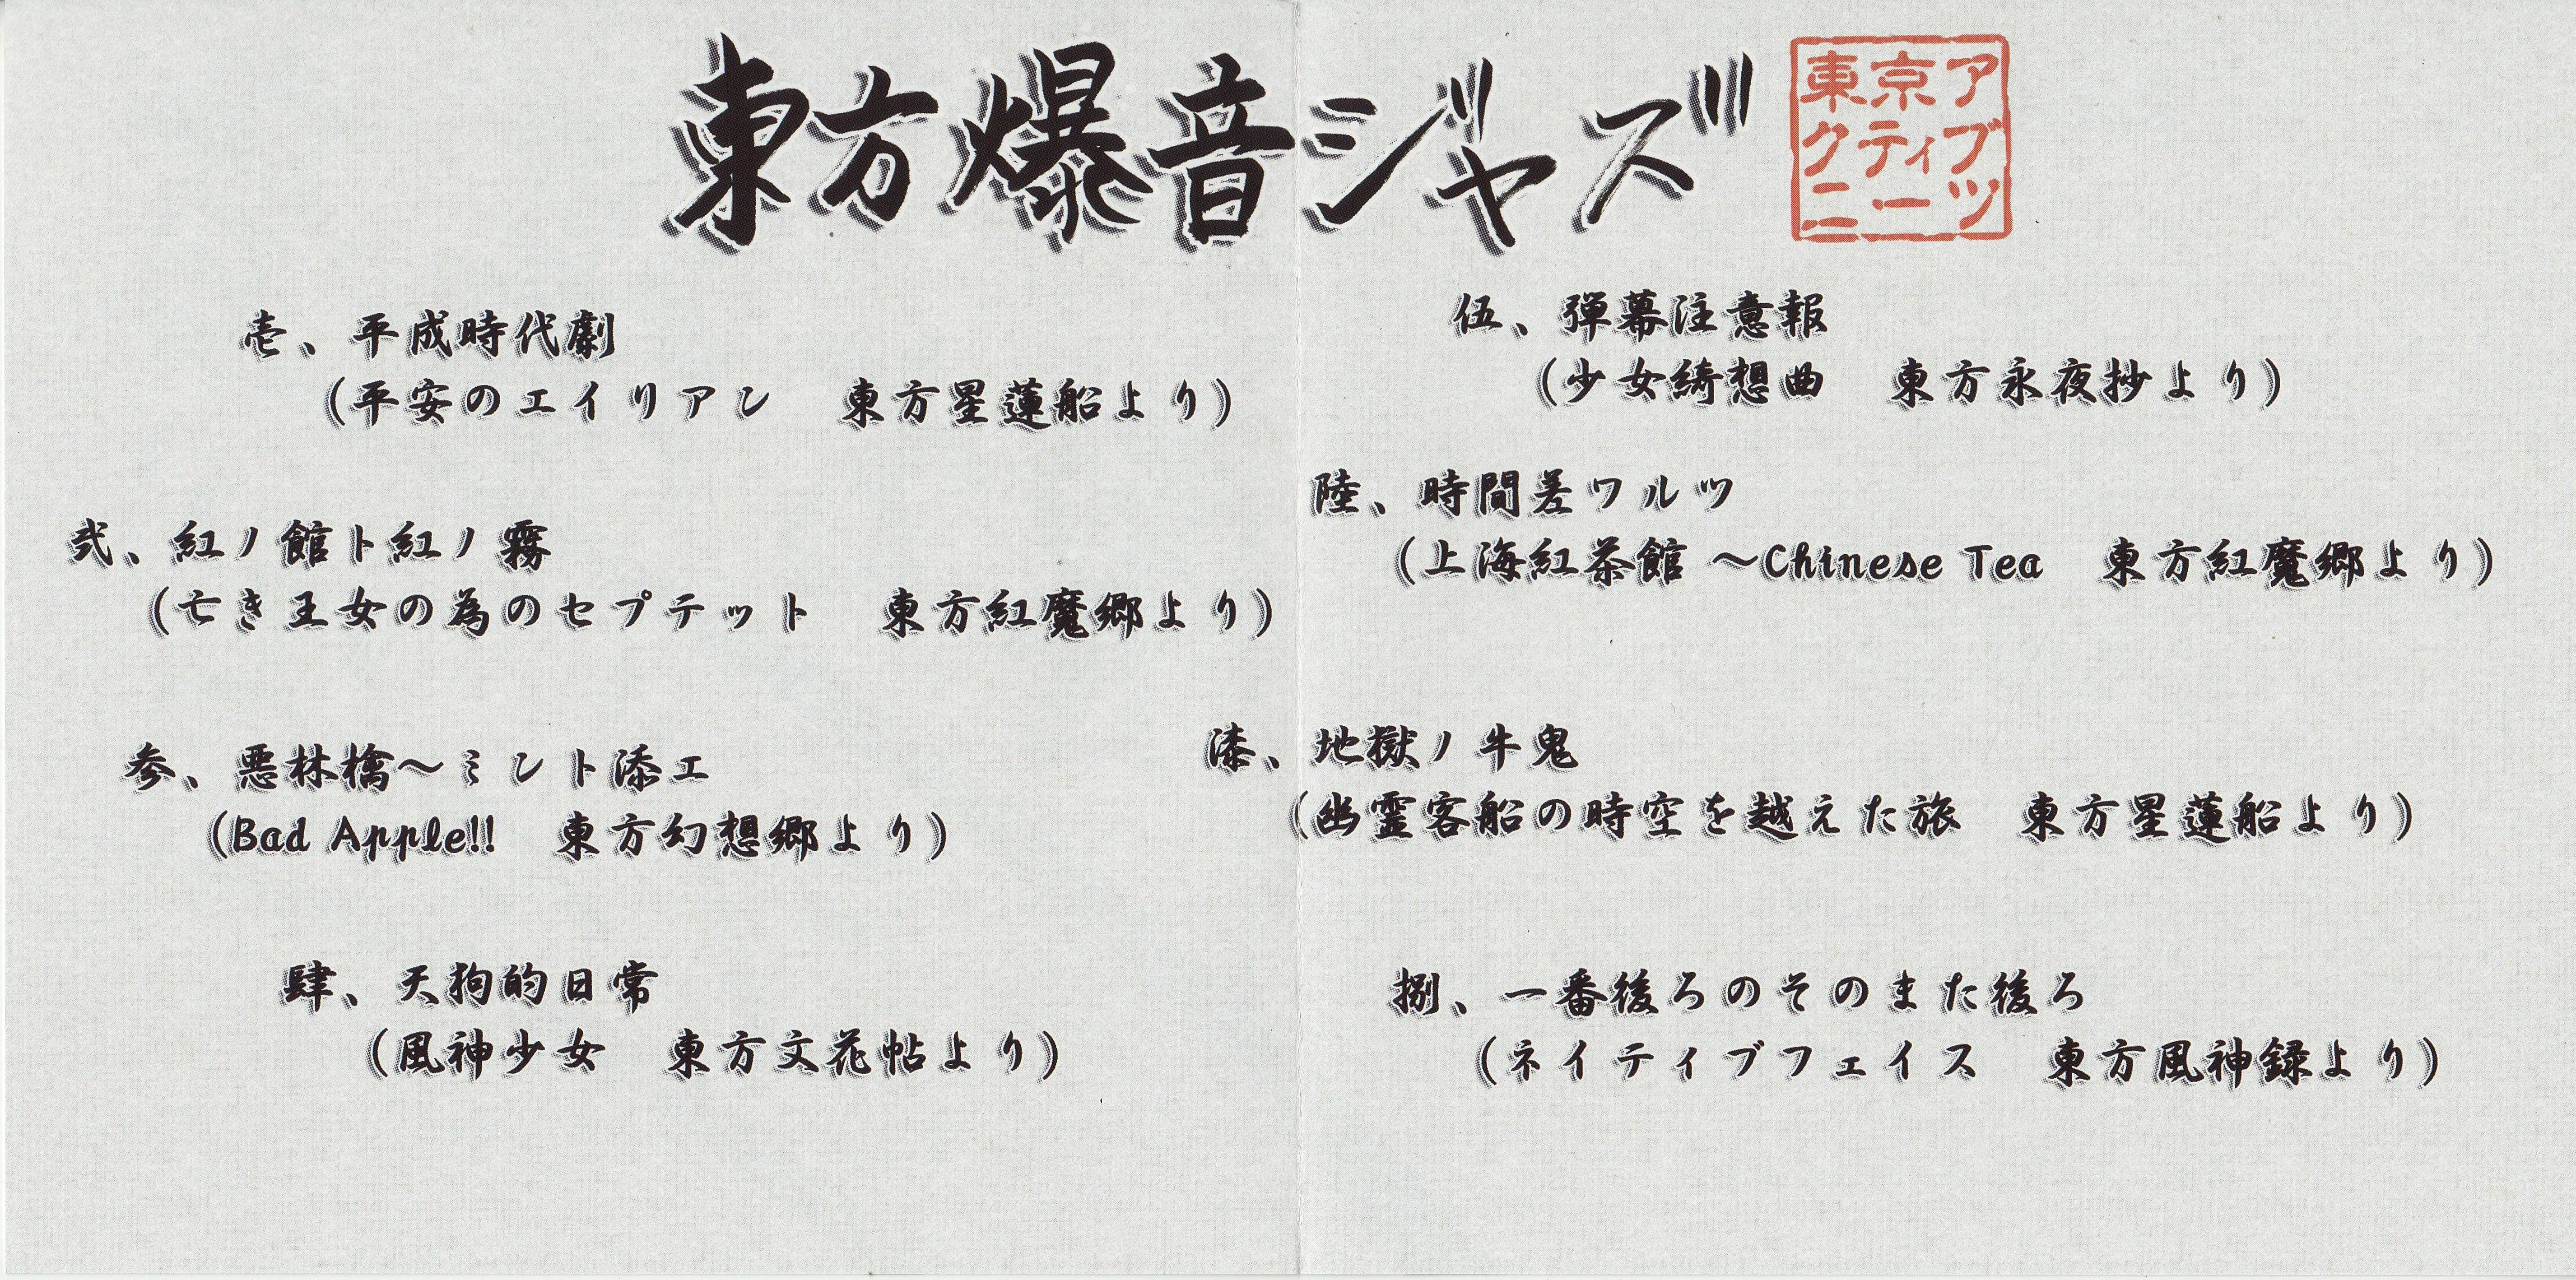 東方爆音ジャズ
東京ア
クティブ
ニーツ
壱、平成時代劇
(平安のエイリアン　東方星蓮船より)
弐、紅ノ館ト紅ノ霧
(亡き王女の為のセプテット　東方紅魔郷より)
参、悪林檎～ミント添エ
(Bad Apple!!　東方幻想郷より)
肆、天狗的日常
(風神少女　東方文花帖より)
伍、弾幕注意報
(少女綺想曲　東方永夜抄より)
陸、時間差ワルツ
(上海紅茶館 ～Chinese Tea　東方紅魔郷より)
漆、地獄ノ牛鬼
(幽霊客船の時空を越えた旅　東方星蓮船より)
捌、一番後ろのそのまた後ろ
(ネイティブフェイス　東方風神録より)